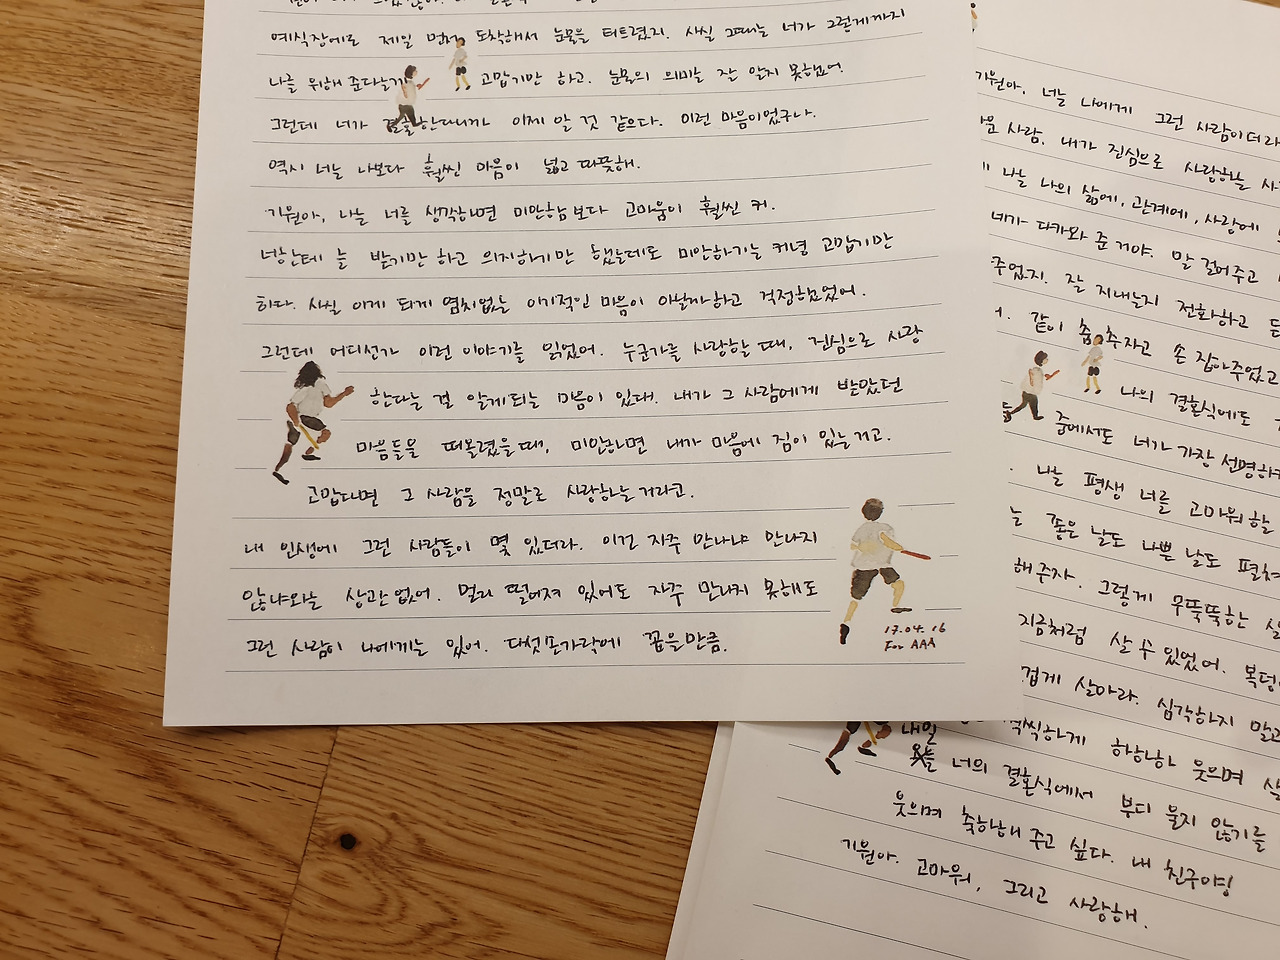 예식장에로 제일 먼저 도착해서 눈물을 터트렸지. 사실 그때는 너가 그렇게까지
나를 위해 준다는게 고맙기만 하고. 눈물의 의미는 잘 알지 못했어.
그런데 너가 결혼한다니까 이제 알 것 같은다. 이런 마음이었구나.
역시 너는 나보다 훨씬 마음이 넓고 따뜻해.
기원아, 나는 너를 생각하면 미안함보다 고마움이 훨씬 커.
너한테 늘 받기만 하고 의지하기만 했는데도 미안하기는 커녕 고맙기만
하다. 사실 이게 되게 염치없는 이기적인 마음이 아닐까하고 걱정했었어.
그런데 어디선가 이런 이야기를 읽었어. 누군가를 사랑할 때, 진심으로 사랑
한다는 걸 알게되는 마음이 있대. 내가 그 사람에게 받았던
마음들을 떠올렸을때, 미안하면 내가 마음에 짐이 있는거고.
고맙다면 그 사람을 정말로 사랑하는거라고.
내 인생에 그런 사람들이 몇 있더라. 이건 자주 만나냐 만나지
않냐와는 상관없어. 멀리 떨어져 있어도 자주 만나지 못해도
그런 사람이 나에게는 있어. 다섯손가락에 꼽을만큼.
17.04.16
For AAA
기원아. 너는 나에게 그런 사람이더라
사람. 내가 진심으로 사랑하는
나는 나의 삶에, 관계에, 사랑에
네가 다가와 준 거야. 말 걸어주고
주었지. 잘 지내는지 전화하고
같이 춤추자고 손 잡아주었고
나의 결혼식에도
중에서도 너가 가장 선명하
나는 평생 너를 고마워할
좋은 날도 나쁜 날도 펼쳐
해주자. 그렇게 무뚝뚝하는
지금처럼 살 수 있었어. 복덩
겁게 살아라. 심각하지 말고
씩씩하게 하하하 웃으며
내일 너의 결혼식에서 부디 울지 않기를
웃으며 축하해 주고 싶다. 내 친구야!
기원아. 고마워, 그리고 사랑해.